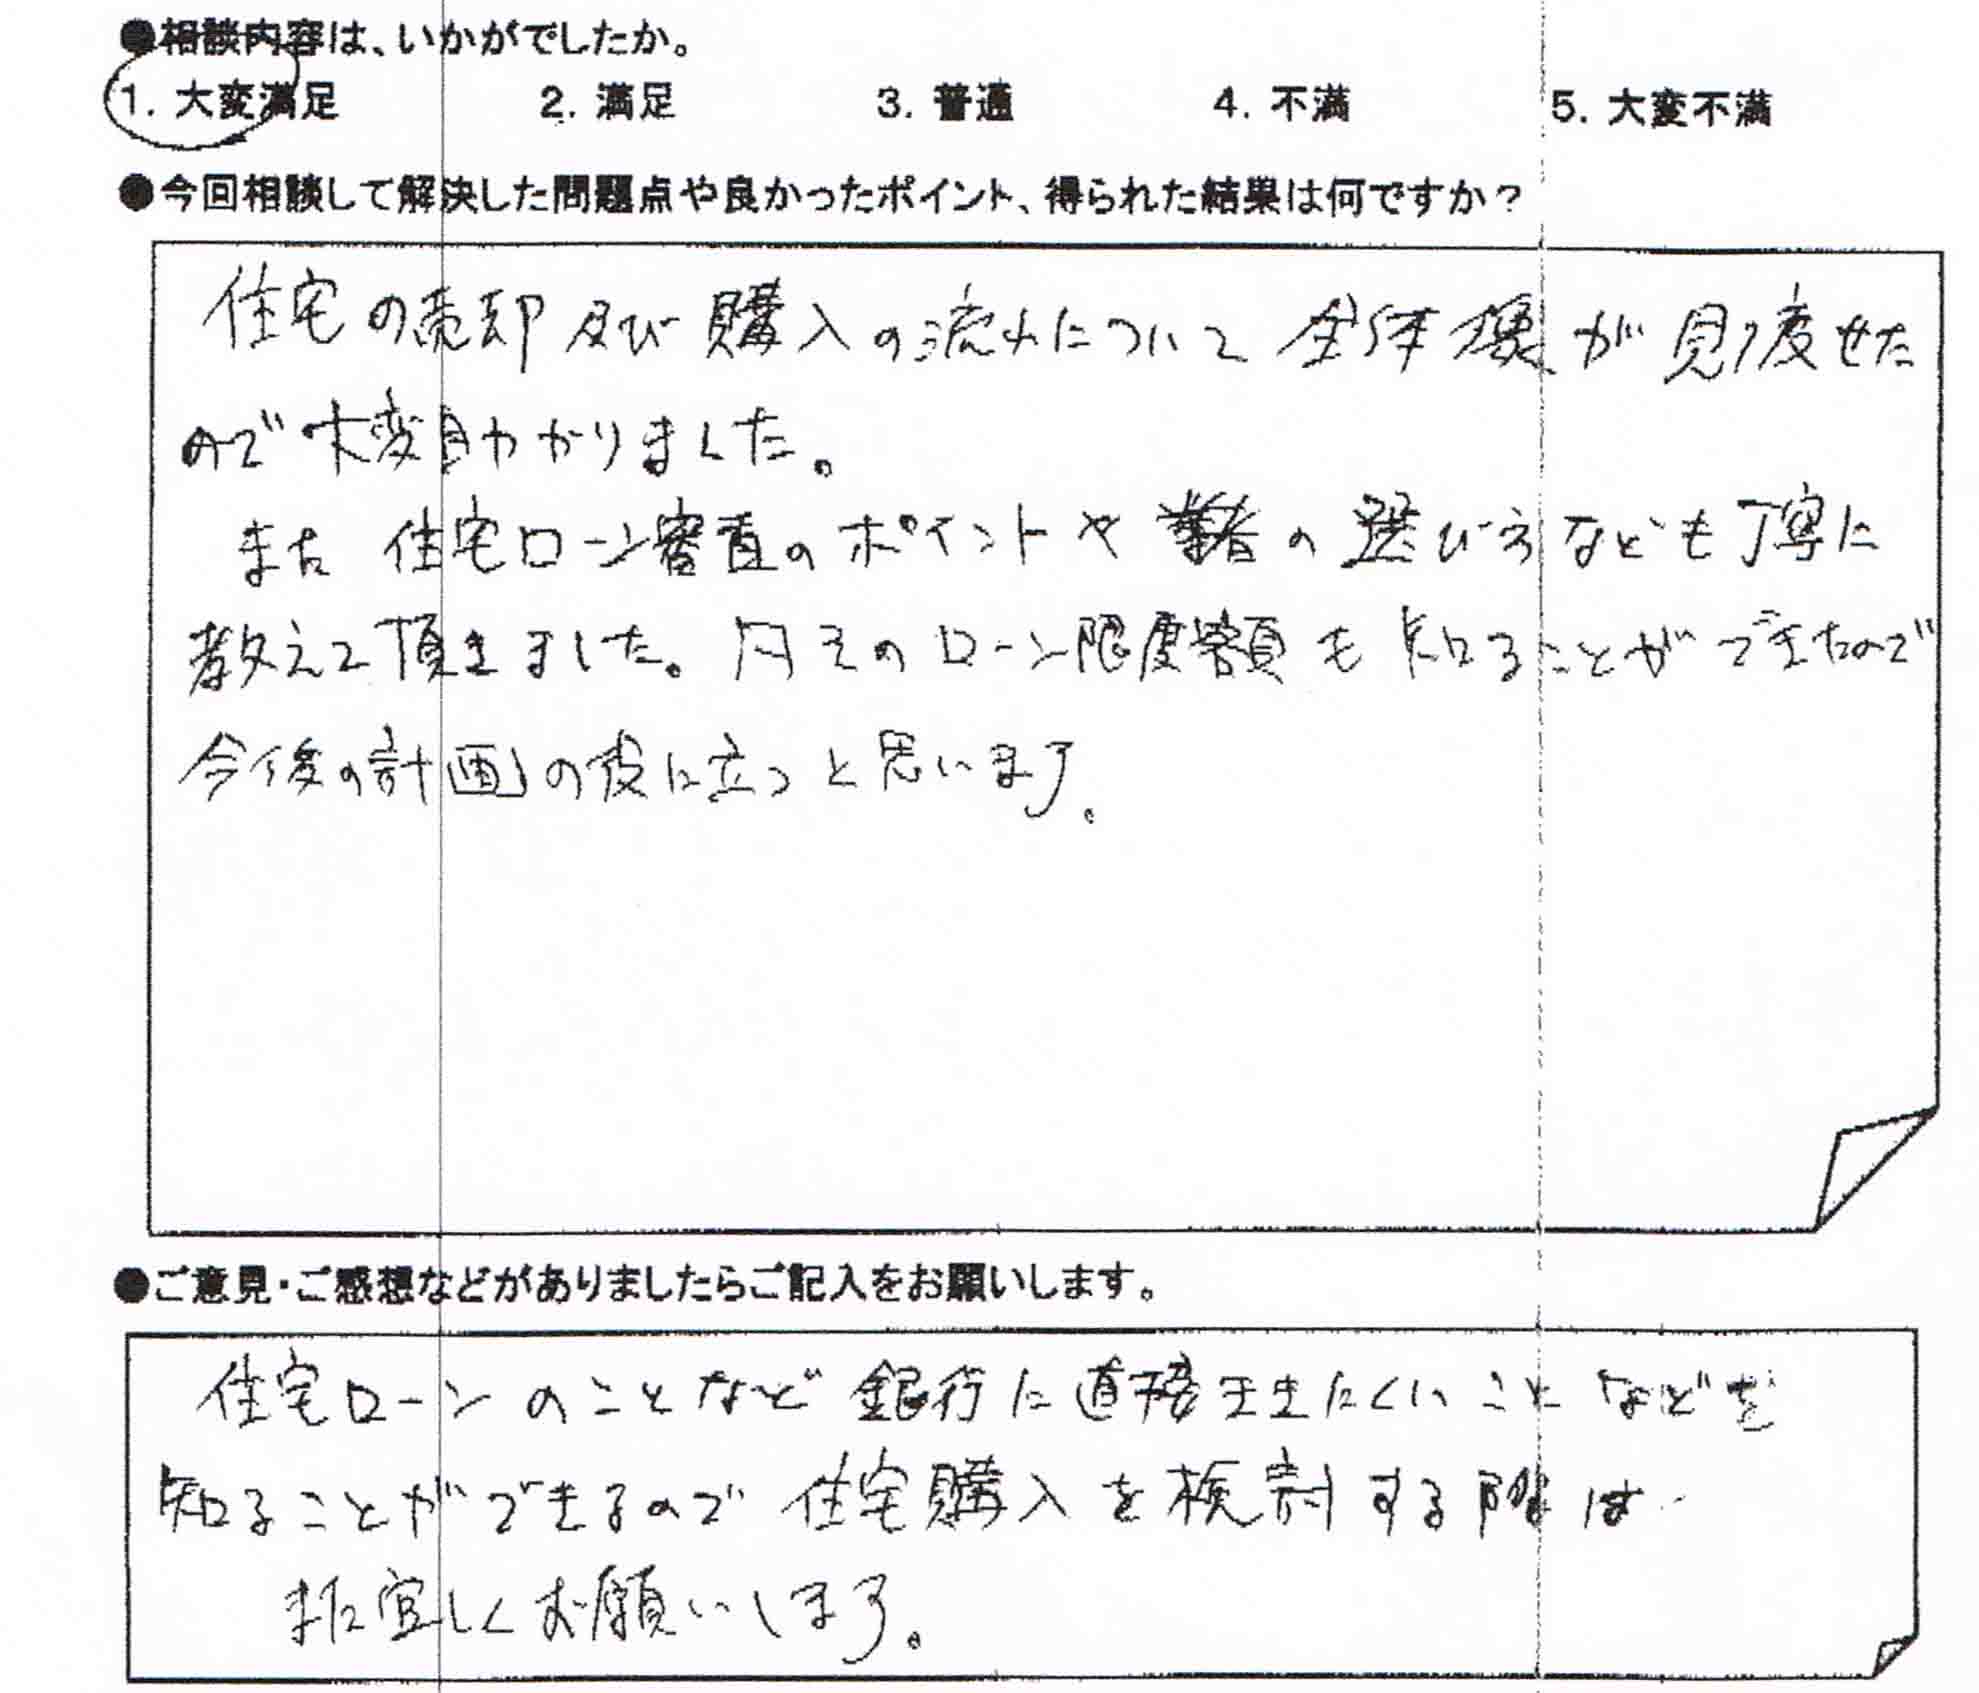 ●相談内容は、いかがでしたか。
1. 大変満足 2. 満足 3. 普通 4. 不満 5. 大変不満
●今回相談して解決した問題点や良かったポイント、得られた結果は何ですか？
住宅の売却及び購入の流れについて全体像が見渡せた
ので大変助かりました。
また住宅ローン審査のポイントや業者の選び方なども丁寧に
教えて頂きました。月々のローン限度額も知ることができたので
今後の計画の役に立つと思います。
●ご意見・ご感想などがありましたらご記入をお願いします。
住宅ローンのことなど銀行に直接ききにくいことなどを
知ることができるので住宅購入を検討する際は
また宜しくお願いします。